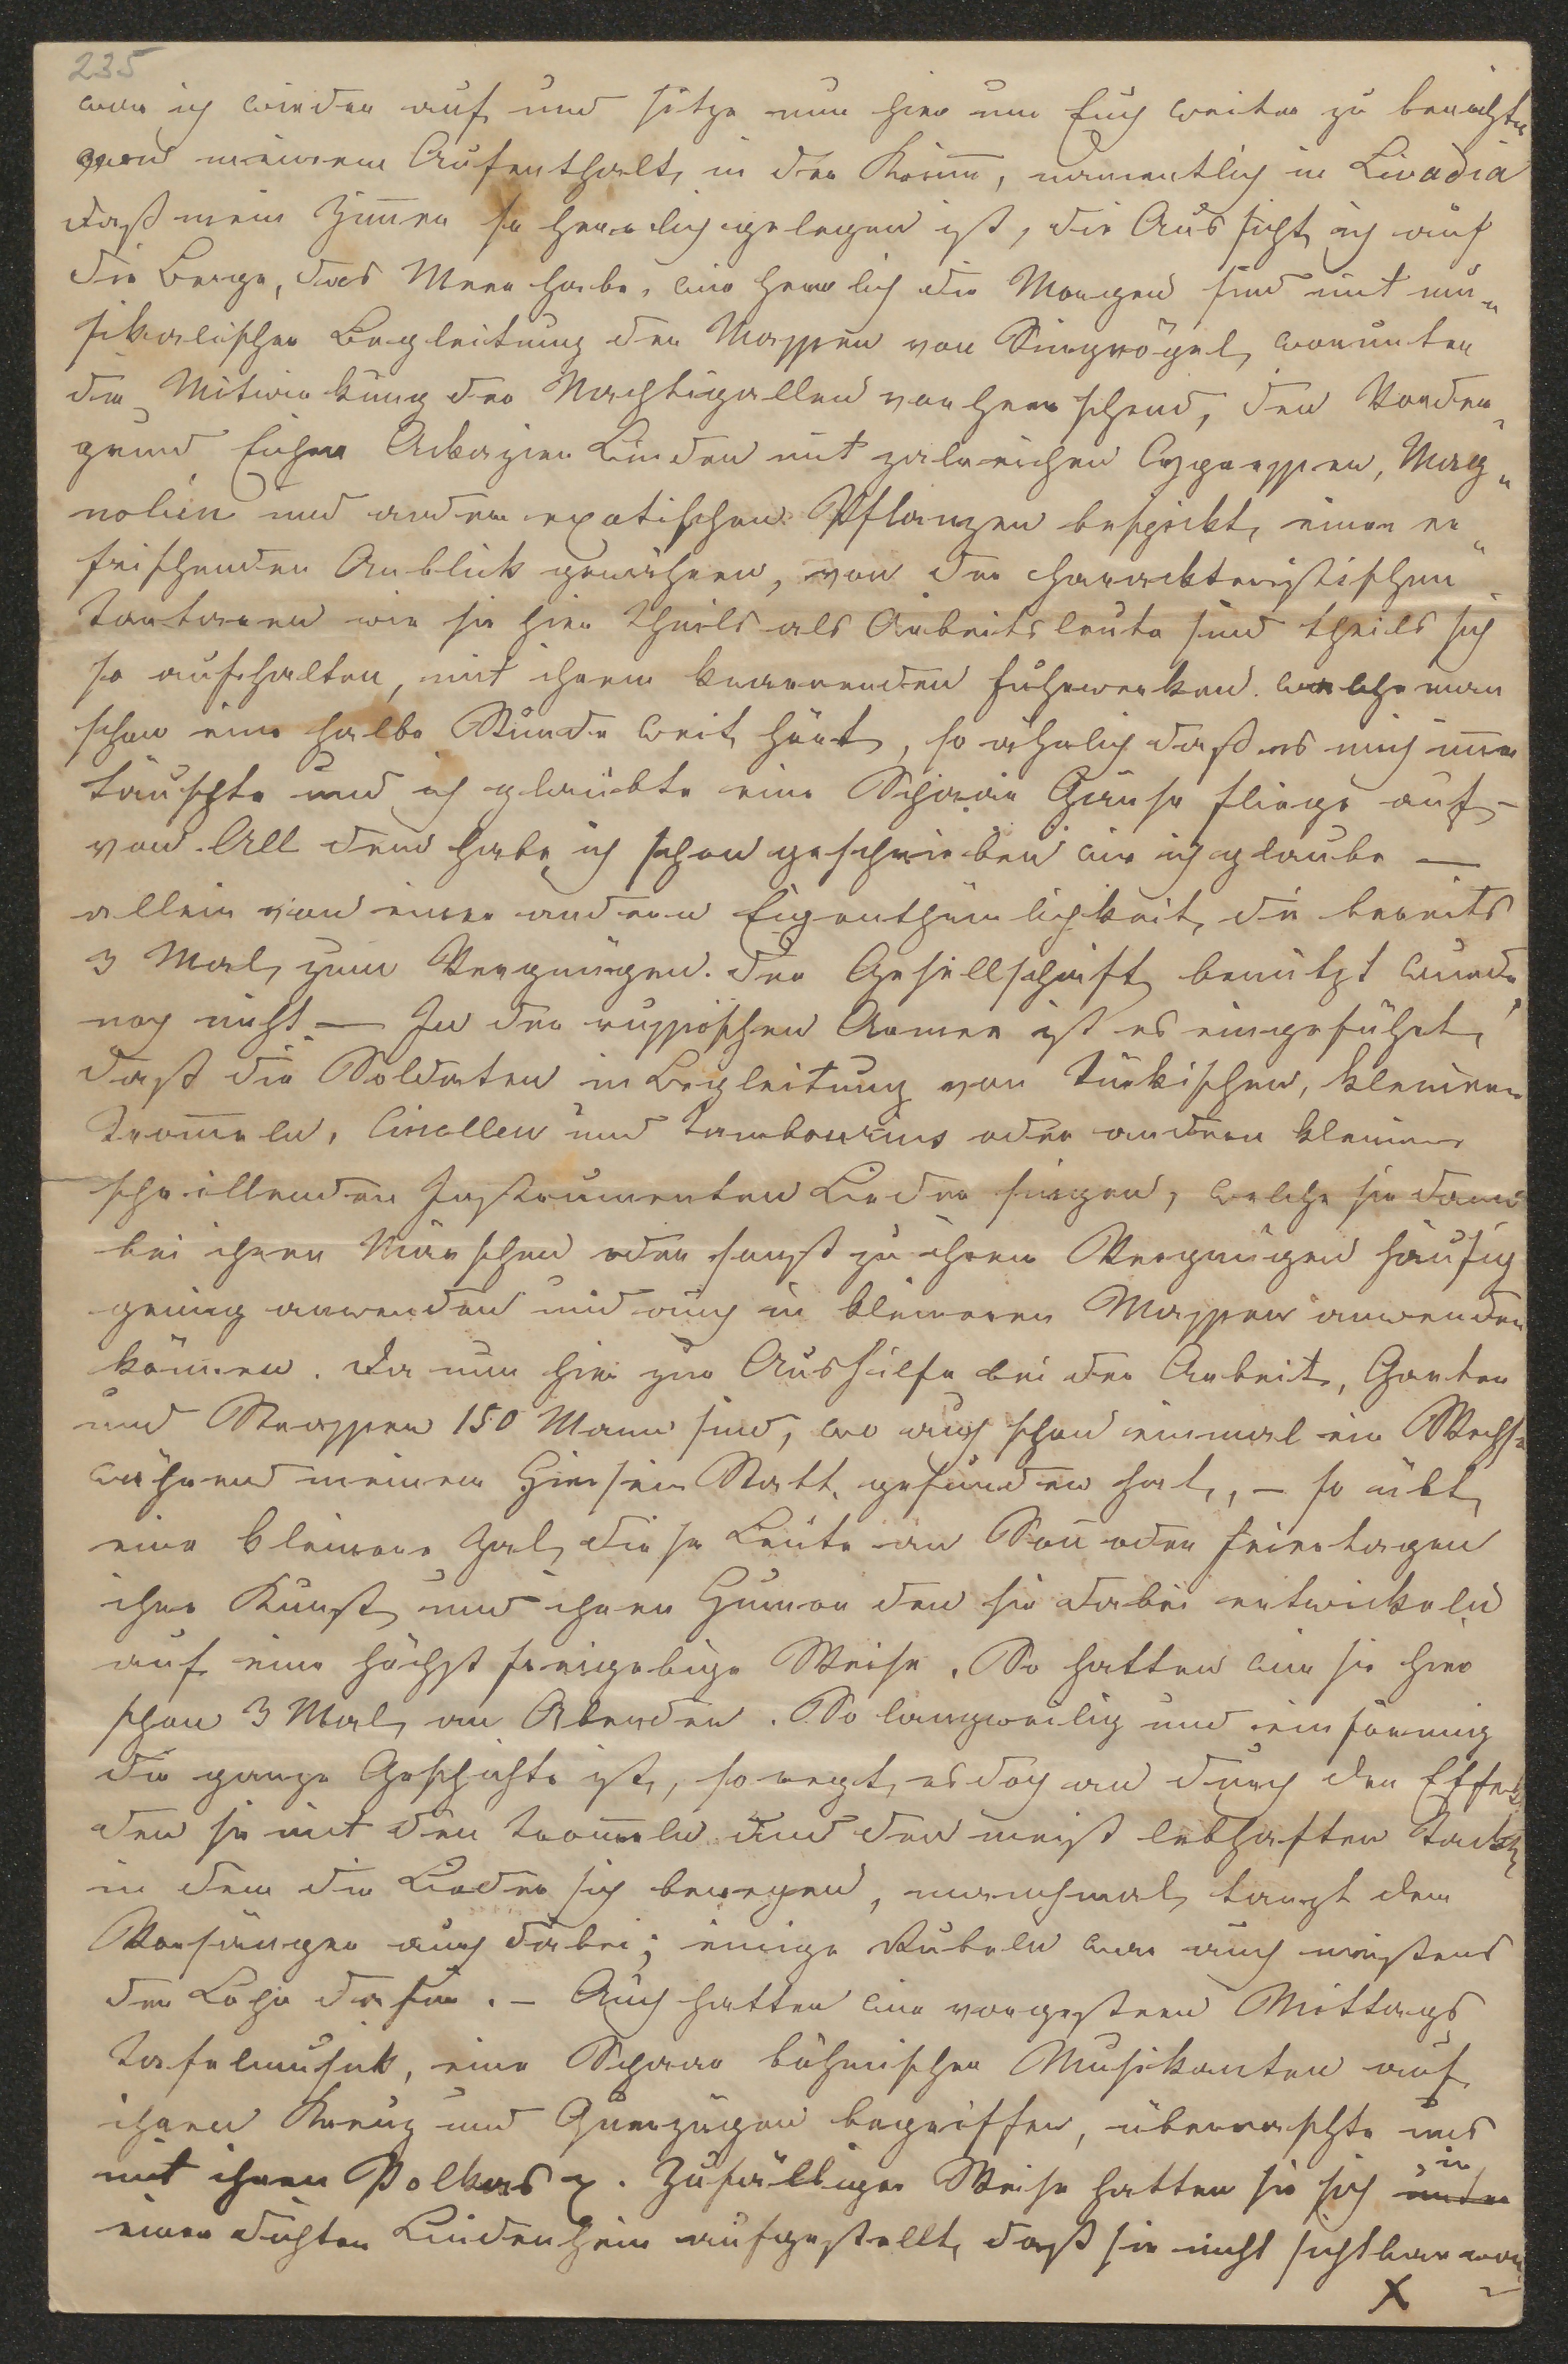 235
war ich wieder auf und sitze nun hier um Euch weiter zu berichten
von meinem Aufenthalt, in der Krim̅, namentlich in Livadia
daß mein Zim̅er so herrlich gelegen ist, die Aussicht ich auf
die Berge, das Meer habe, wie herrlich die Morgen sind mit mu„
sikalischer Begleitung der Massen von Singvögel, worunter
die Mitwirkung der Nachtigallen vorherrschend, den Vorder„
grund Eichen Ackazien Linden mit zalreichen Cypressen, Mag„
nolien und andern exotischen Pflanzen bespickt, einen er„
frischenden Anblick gewähren, von den charackteristischen
Tartaren wie sie hier theils als Arbeitsleute sind theils sich
so aufhalten, mit ihren knarrenden Fuhrwerken welche man
schon eine halbe Stunde weit hört, so ähnlich daß es mich im̅er
täuschte und ich glaubte eine Schaar Gänse fliege auf –
von All dem habe ich schon geschrieben wie ich glaube —
allein von einer andern Eigenthümlichkeit, die bereits
3 Mal, zum Vergnügen der Gesellschaft benützt wurde
noch nicht. — In der russischen Armee ist es eingeführt,
daß die Soldaten in Begleitung von türkischen, kleinen
Trom̅eln, Cinellen und Tambourins oder andern kleinen
schrillenden Instrumenten Lieder singen, welche sie dann
bei ihren Märschen oder sonst zu ihren Vergnügen häufig
genug anwenden und auch in kleineren Massen anwenden
können. Da nun hier zur Aushülfe bei der Arbeit, Garten
und Strassen 150 Mann sind, wo auch schon einmal ein Wechsel
während meinem Hiersein Statt gefunden hat, – so übt,
eine kleinere Zal, diese Leute an Son̅ oder Feiertagen
ihre Kunst, und ihren Humor den sie dabei entwickeln
auf eine höchst freigebige Weise. So hatten wir sie hier
schon 3 Mal, an Abenden. So langweilig und einförmig
die ganze Geschichte ist, so regt es doch an durch den Effekt
den sie mit den Trom̅eln und den meist lebhaften Tackt,
in dem die Lieder sich bewegen, manchmal, tanzt der
Vorsänger auch dabei; einige Rubeln war auch meistens
der Lohn dafür. – Auch hatten wir vorgestern Mittags
Tafelmusick, eine Schaar böhmischer Musikanten auf
ihren Kreuz und Querzügen begriffen, überraschte uns
mit ihren Polkas . Zufälliger Weise hatten sie sich unter in
einer dichten Lindenhein aufgestellt, daß sie nicht sichtbar war„
X